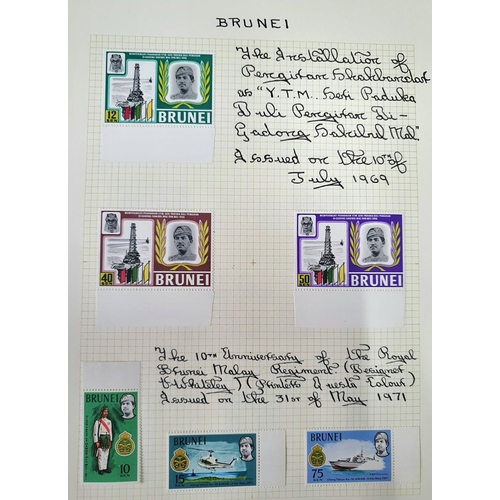 BRUNEI
The Installation of
Pengiran Shahbandar
as "Y.T.M. Seri Paduka
Duli Pengiran Di-
Gadong Sahibul Mal."
Issued on the 10th of
July 1969
12
SEN
BRUNEI
40
SEN
BRUNEI
50
SEN
BRUNEI
The 10TH Anniversary of the Royal
Brunei Malay Regiment (Designer
V. Whiteley) (Printers Questa Colour)
Issued on the 31st of May 1971
10
SEN
BRUNEI
15
BRUNEI
75
SEN